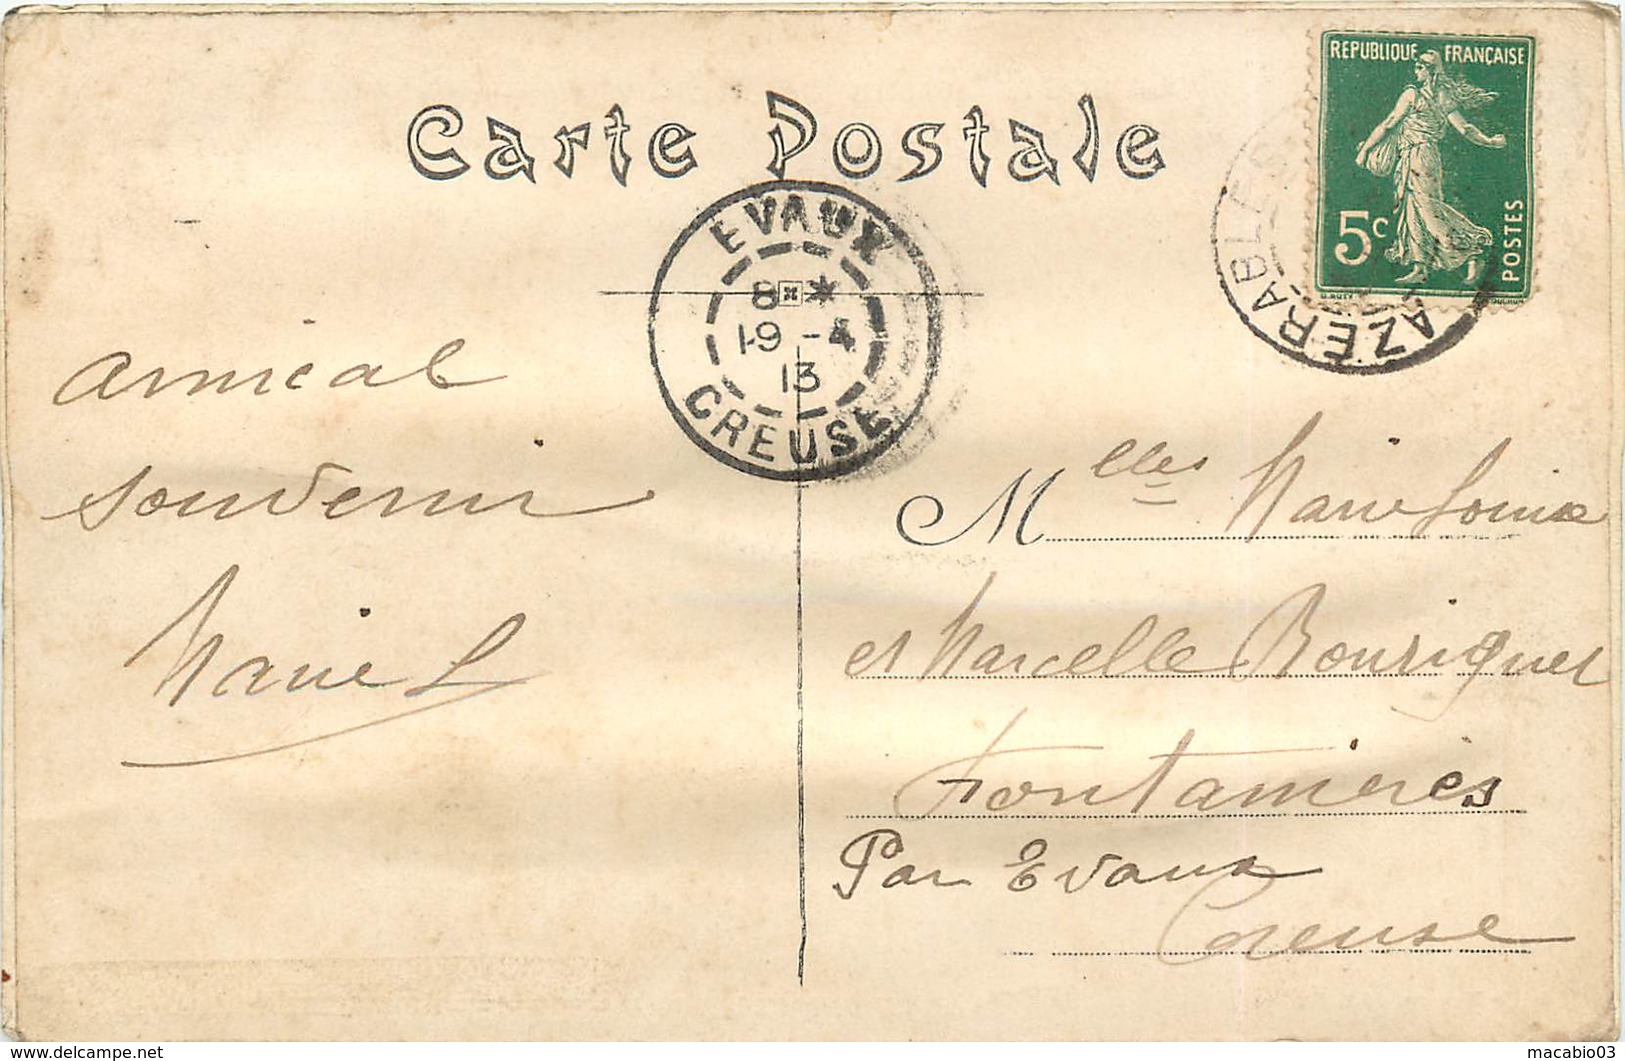 Carte Postale
REPUBLIQUE FRANÇAISE
5c
POSTES
AZERABLES
EVAUX
8 *
19 - 4
13
CREUSE
amical
souvenir
Marie L
Mlles Marie Louise
et Marcelle Bourriquet
Fontanières
Par Evaux
Creuse
delcampe.net
macabio03